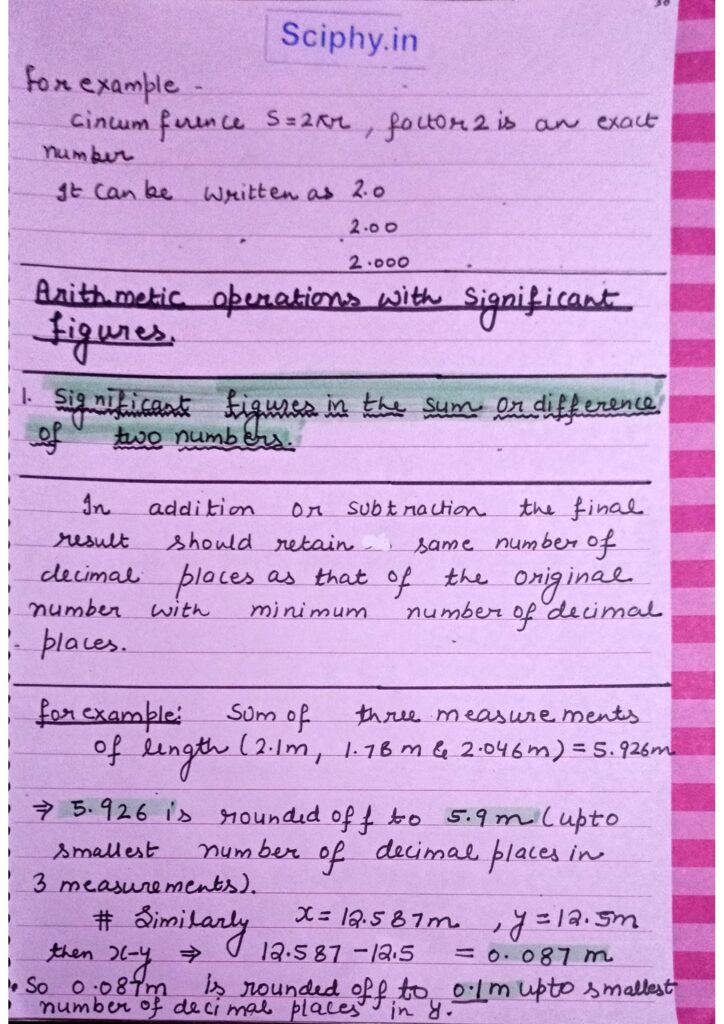 30
Sciphy.in
For example -
Circumference S=2πr, factor 2 is an exact
number
It can be written as 2.0
2.00
2.000
Arithmetic operations with Significant
figures.
1. Significant figures in the sum or difference
of two numbers.
In addition or subtraction the final
result should retain same number of
decimal places as that of the original
number with minimum number of decimal
places.
for example: Sum of three measurements
of length (2.1m, 1.78 m & 2.046m) = 5.926m
⇒ 5.926 is rounded off to 5.9 m (upto
smallest number of decimal places in
3 measurements).
# Similarly x = 12.587m , y = 12.5m
then x-y ⇒ 12.587 - 12.5 = 0.087 m
• So 0.087m is rounded off to 0.1m upto smallest
number of decimal places in y.